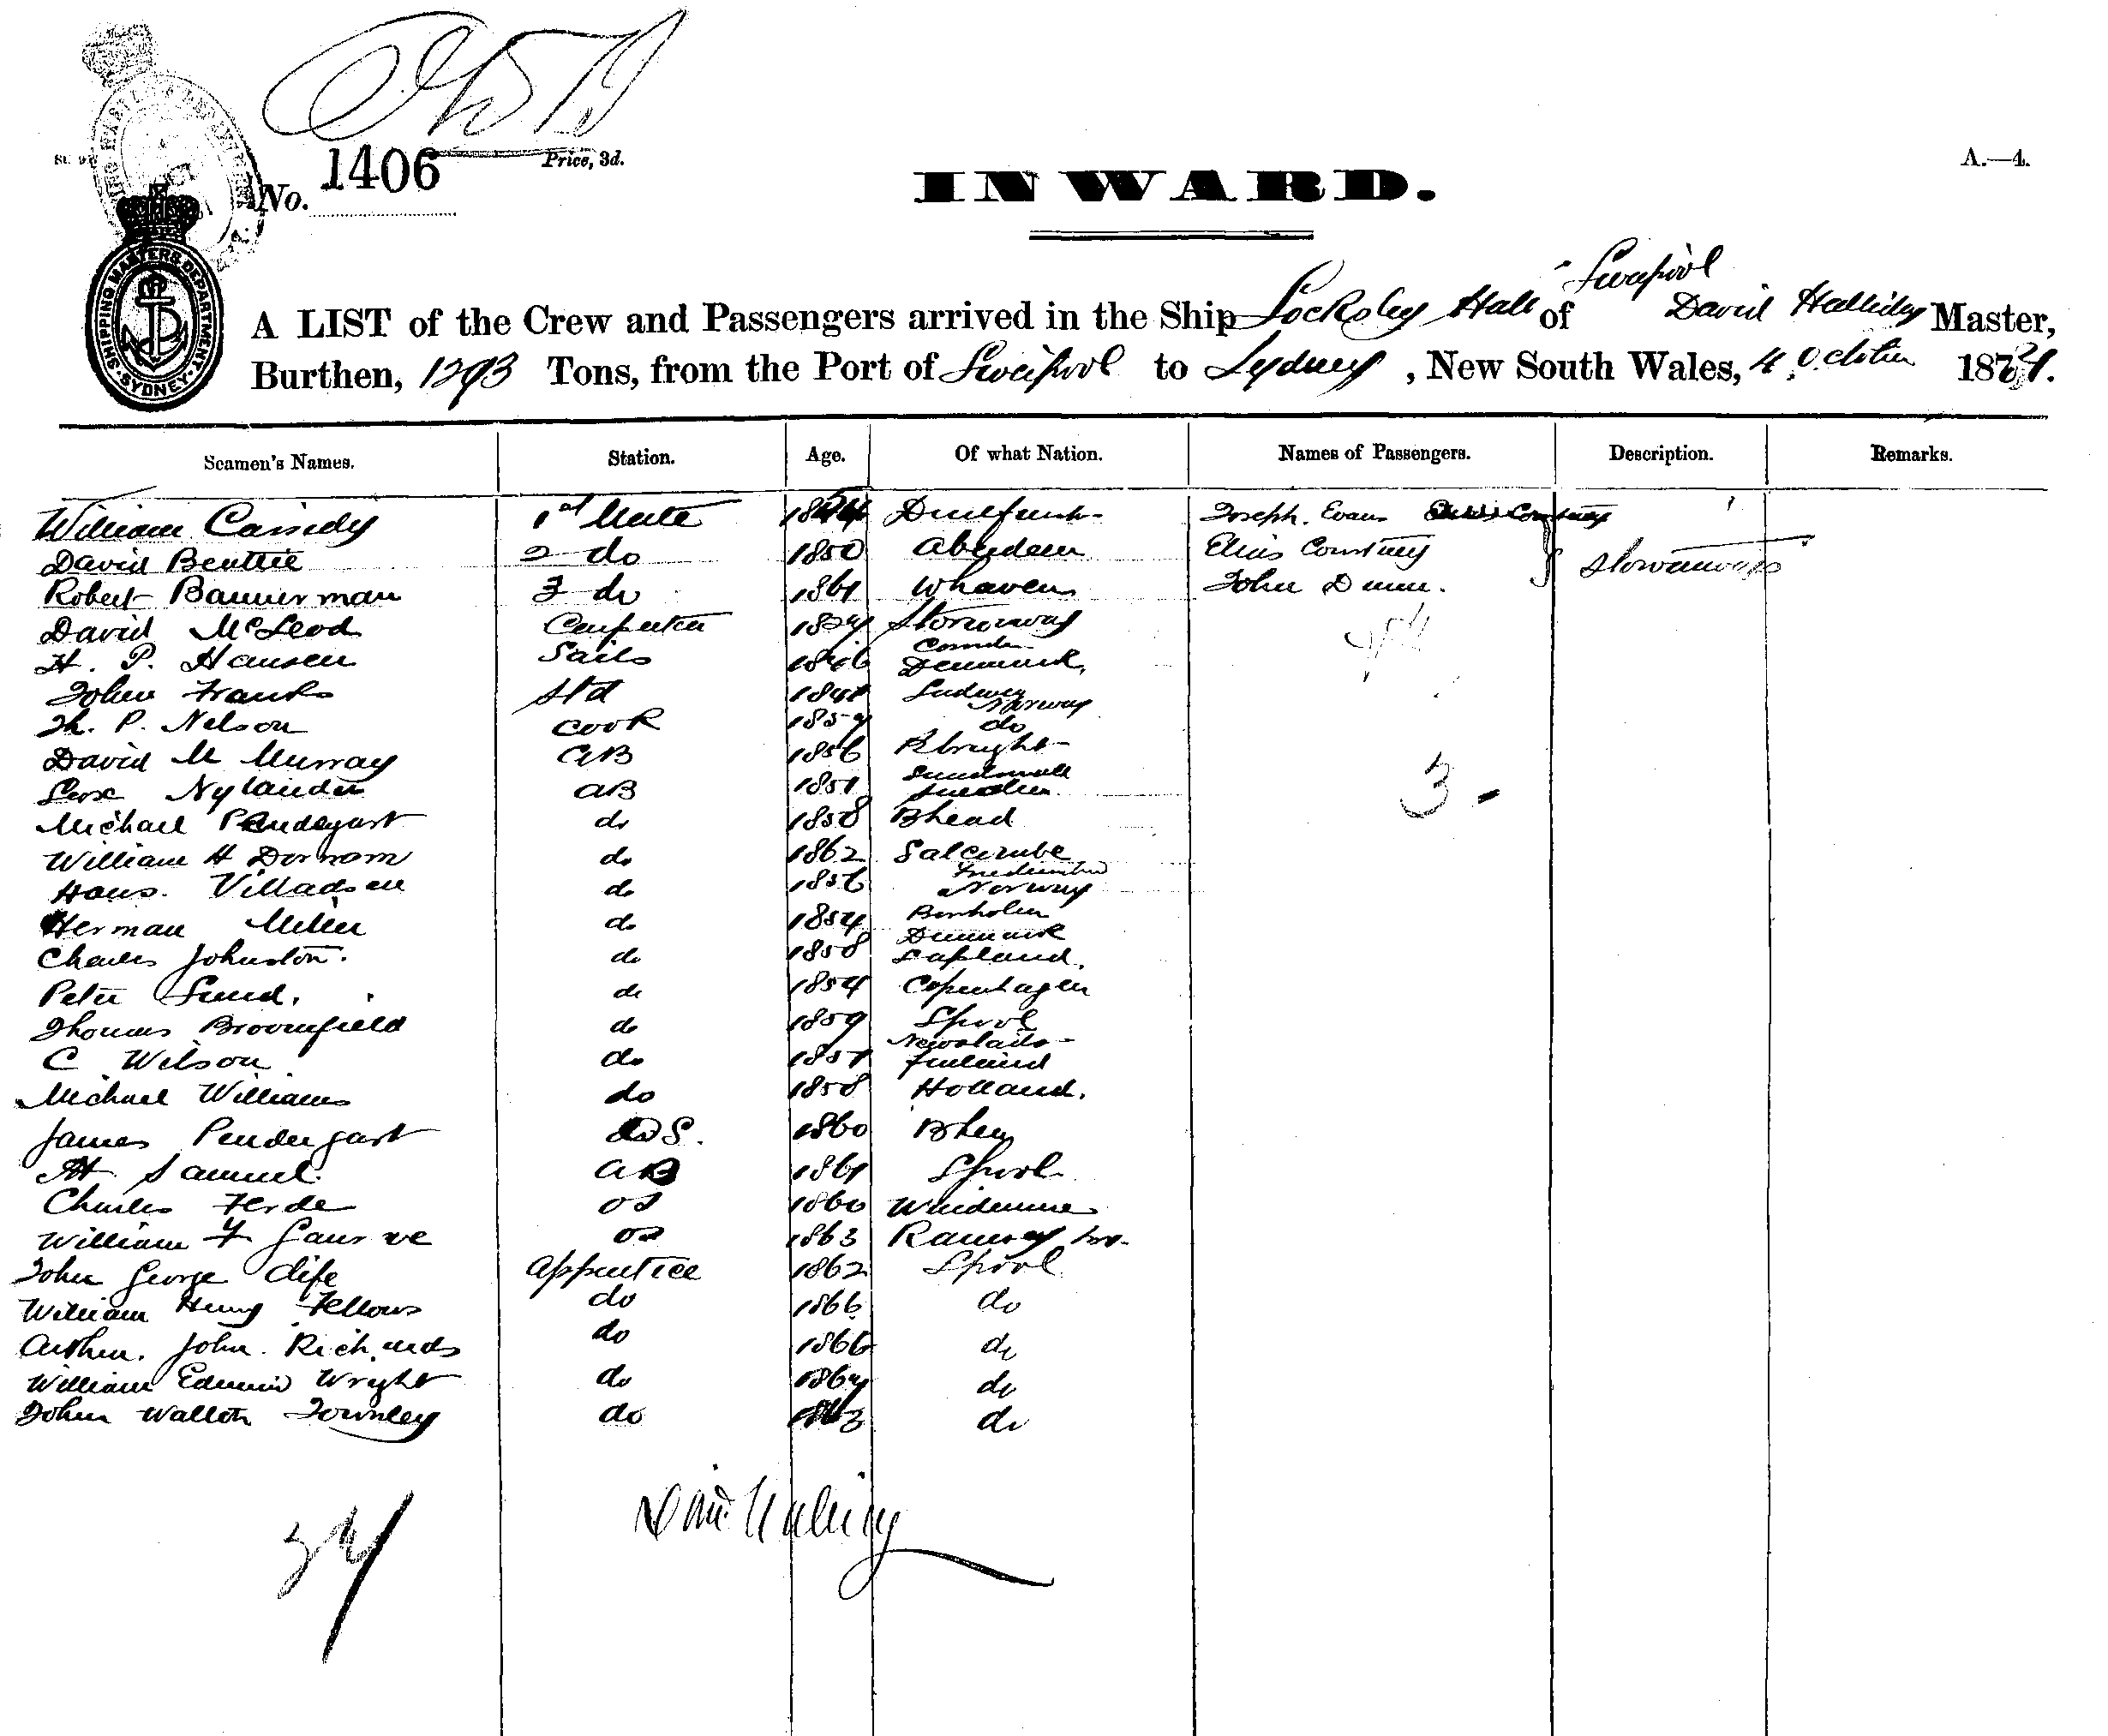 No. 1406
Price, 3d.
A.—4.
INWARD.
SHIPPING MASTERS DEPARTMENT SYDNEY
Liverpool
A LIST of the Crew and Passengers arrived in the Ship Locksley Hall of David Halliday Master,
Burthen, 1293 Tons, from the Port of Liverpool to Sydney, New South Wales, 4 October 18
Seamen's Names. Station. Age. Of what Nation. Names of Passengers. Description. Remarks.
William Cassidy 1st Mate Joseph Evans
David Beattie 2 do 1850 Aberdeen Elias Courtney Stowaways
Robert Bannerman 3 do 1861 Whaven John Dunn.
David McLeod Carpenter Stornoway
H. P. Hansen Sails 1846 Denmark,
John Franks Std 1841 Norway
Th. P. Nelson Cook 1859 do
David M Murray AB 1856
Nylander AB 1851 Sundswall Sweden
Michael Pendegast do 1858 Bhead
William H Dornom do 1862 Salcombe
Hans. Villadsen do 1856 Norway
Herman Miller do 1854 Bornholm Denmark
Charles Johnston. do 1858 Lapland.
Peter Lund. do 1854 Copenhagen
Thomas Broomfield do 1859 Lpool
C Wilson do 1857 Finland
Michael Williams do 1858 Holland.
James Pendergast OS. 1860 Bhead
Samuel. AB 1861 Lpool
Charles Forde OS 1860 Windermere
William F OS 1863 Ramsey
John George Clife Apprentice 1862 Lpool
William Henry Fellows do 1866 do
Arthur. John. Richards do 1866 do
William Edwin Wright do 1864 do
John Walton Townley do 1863 do
3